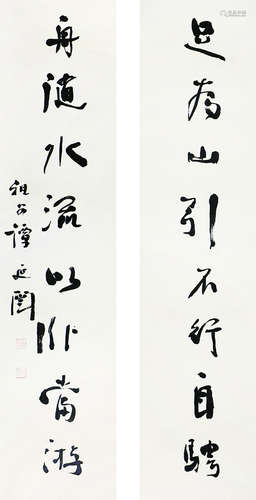 足為山引不行自騁
舟隨水流以作當游
祖安譚延闓